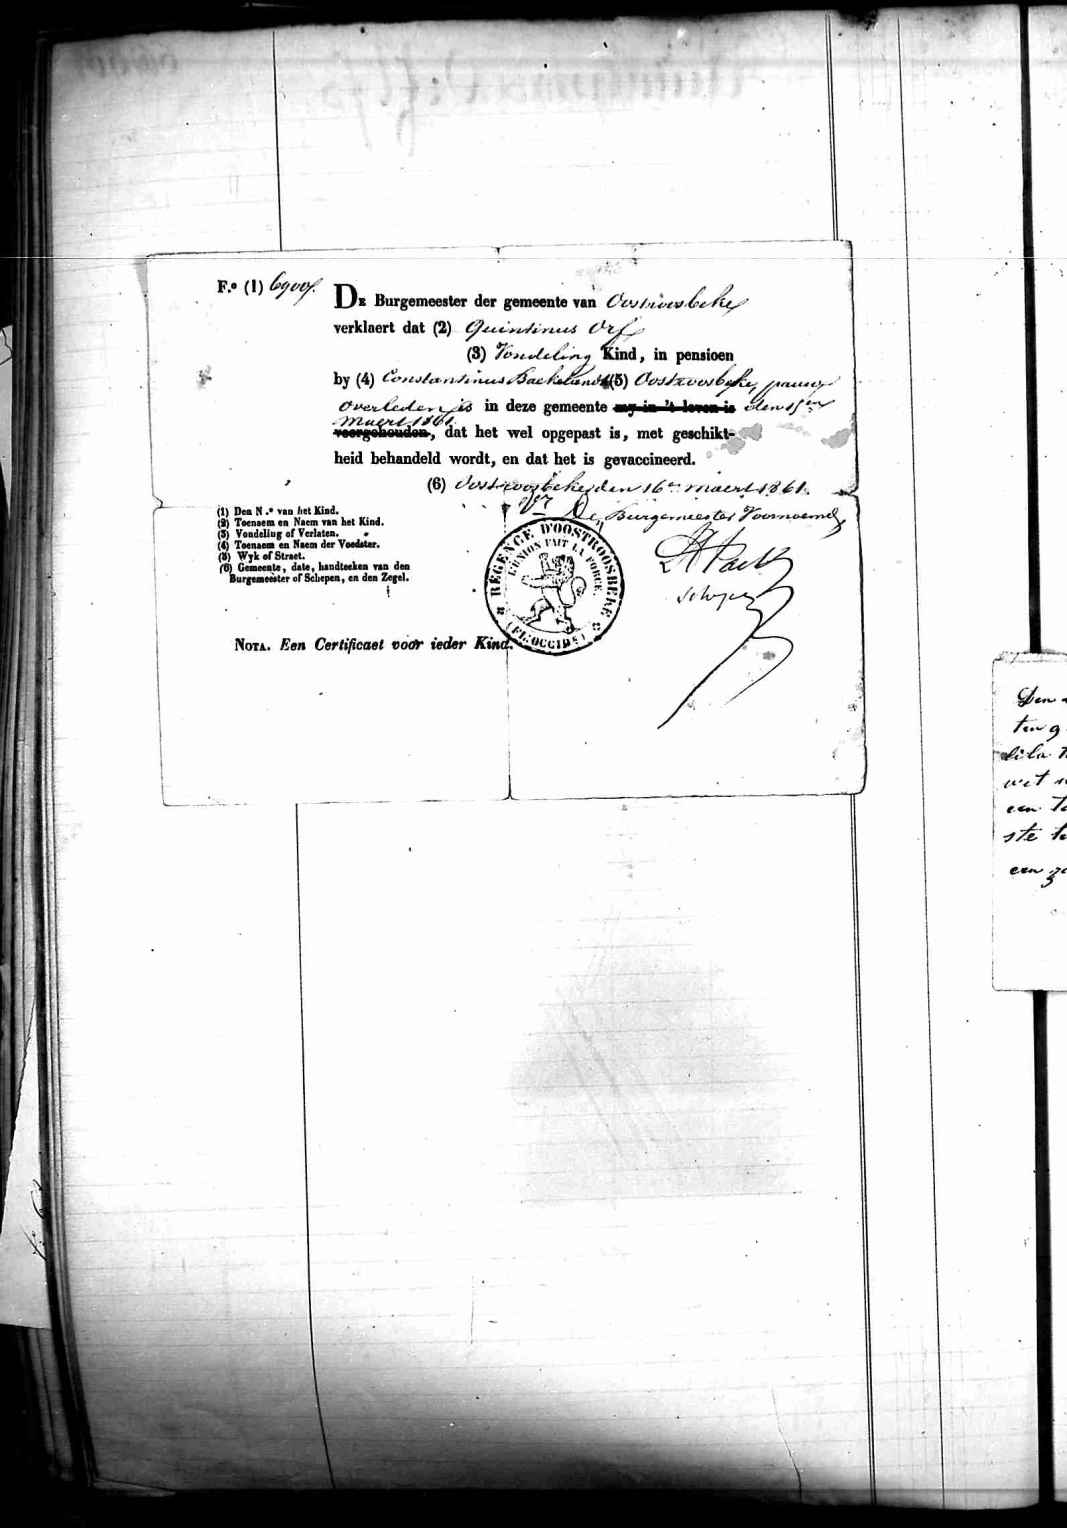 F.º (1) 6900f.
De Burgemeester der gemeente van Oostroosbeke
verklaert dat (2) Quintinus Orf
(3) Vondeling Kind, in pensioen
by (4) Constantinus Baekelandt (5) Oostroosbeke,
overleden is in deze gemeente my in 't leven is den 15en
maert 1861
voorgehouden, dat het wel opgepast is, met geschikt-
heid behandeld wordt, en dat het is gevaccineerd.
(6) Oostroosbeke den 16en maert 1861.
De Burgemeester Voornoemd,
Schepen
(1) Den N.º van het Kind.
(2) Toenaem en Naem van het Kind.
(3) Vondeling of Verlaten.
(4) Toenaem en Naem der Voedster.
(5) Wyk of Straet.
(6) Gemeente, date, handteeken van den
Burgemeester of Schepen, en den Zegel.
RÉGENCE D'OOSTROOSBEKE
L'UNION FAIT LA FORCE
(FL: OCCID:)
Nota. Een Certificaet voor ieder Kind.
Den
een